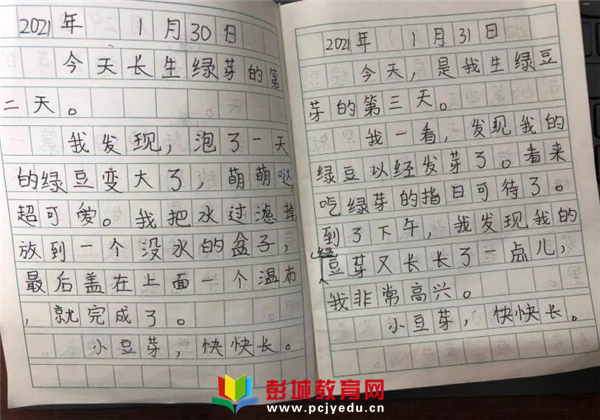 2021年 1月30日
今天长生绿芽的第
二天。
我发现，泡了一天
的绿豆变大了，萌萌哒
超可爱。我把水过滤掉
放到一个没水的盆子，
最后盖在上面一个温布
，就完成了。
小豆芽，快快长。
2021年 1月31日
今天，是我生绿豆
芽的第三天。
我一看，发现我的
绿豆以经发芽了。看来
吃绿芽的指日可待了。
到了下午，我发现我的
绿豆芽又长长了一点儿，
我非常高兴。
小豆芽，快快长。
彭城教育网
www.pcjyedu.cn